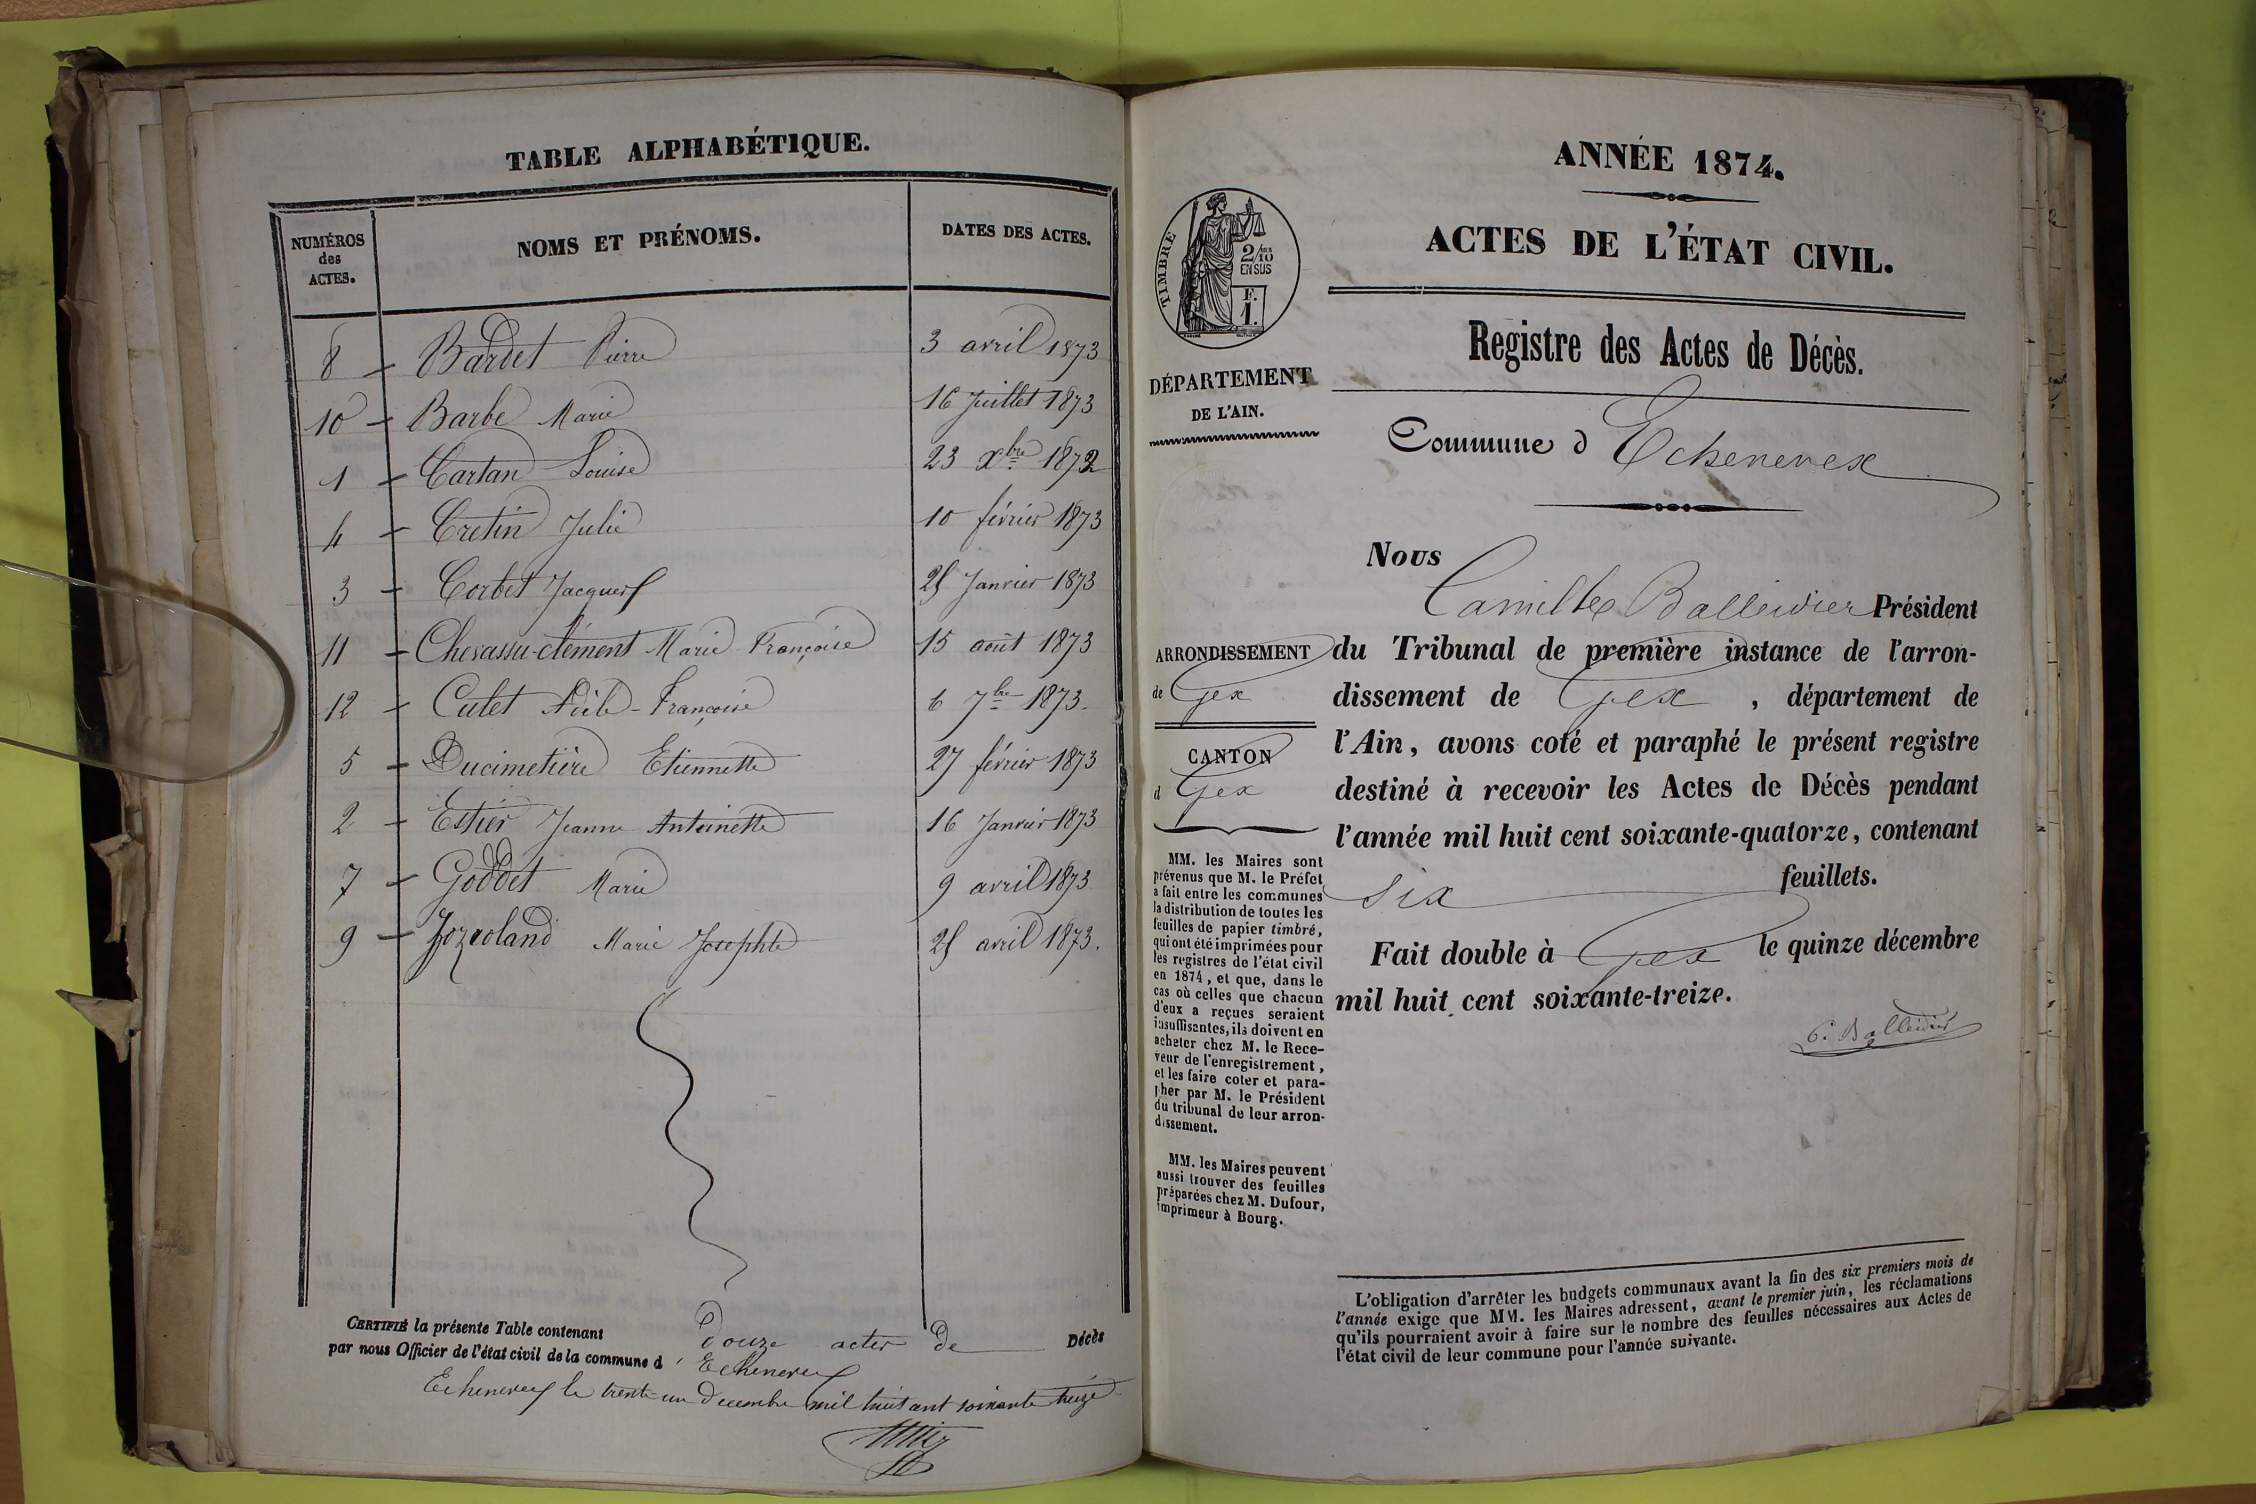 TABLE ALPHABÉTIQUE.
NUMÉROS des ACTES. NOMS ET PRÉNOMS. DATES DES ACTES.
8 — Bardet Pierre 3 avril 1873
10 — Barbe Marie 16 Juillet 1873
1 — Cartan Louise 23 Xbre 1872
4 — Cretin Julie 10 février 1873
3 — Corbet Jacques 25 Janvier 1873
11 — Chevassu-clément Marie Françoise 15 août 1873
12 — Culet Françoise 6 7bre 1873.
5 — Ducimetière Etiennette 27 février 1873
2 — Estier Jeanne Antoinette 16 Janvier 1873
7 — Goddet Marie 9 avril 1873
9 — Marie Josephte 25 avril 1873.
CERTIFIÉ la présente Table contenant douze actes de Décès
par nous Officier de l'état civil de la commune d'Echenevex
Echenevex le trente-un Decembre mil huit cent soixante treize
ANNÉE 1874.
ACTES DE L'ÉTAT CIVIL.
TIMBRE
2/10
EN SUS
F.
1.
Registre des Actes de Décès.
DÉPARTEMENT
DE L'AIN.
Commune d Echenevex
Nous
Camille Balleidier Président
du Tribunal de première instance de l'arron-
dissement de Gex, département de
l'Ain, avons coté et paraphé le présent registre
destiné à recevoir les Actes de Décès pendant
l'année mil huit cent soixante-quatorze, contenant
six feuillets.
Fait double à Gex le quinze décembre
mil huit cent soixante-treize.
C. Balleidier
ARRONDISSEMENT
de Gex
CANTON
d Gex
MM. les Maires sont
prévenus que M. le Préfet
a fait entre les communes
la distribution de toutes les
feuilles de papier timbré,
qui ont été imprimées pour
les registres de l'état civil
en 1874, et que, dans le
cas où celles que chacun
d'eux a reçues seraient
insuffisantes, ils doivent en
acheter chez M. le Rece-
veur de l'enregistrement,
et les faire coter et para-
pher par M. le Président
du tribunal de leur arron-
dissement.
MM. les Maires peuvent
aussi trouver des feuilles
préparées chez M. Dufour,
imprimeur à Bourg.
L'obligation d'arrêter les budgets communaux avant la fin des six premiers mois de
l'année exige que MM. les Maires adressent, avant le premier juin, les réclamations
qu'ils pourraient avoir à faire sur le nombre des feuilles nécessaires aux Actes de
l'état civil de leur commune pour l'année suivante.